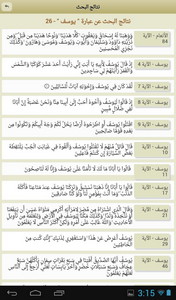 نتائج البحث
نتائج البحث عن عبارة " يوسف " -26
الأنعام - الآية 84
وَوَهَبْنَا لَهُ إِسْحَاقَ وَيَعْقُوبَ كُلًّا هَدَيْنَا وَنُوحًا هَدَيْنَا مِنْ قَبْلُ وَمِنْ
ذُرِّيَّتِهِ دَاوُودَ وَسُلَيْمَانَ وَأَيُّوبَ وَيُوسُفَ وَمُوسَى وَهَارُونَ وَكَذَلِكَ
نَجْزِي الْمُحْسِنِينَ
يوسف - الآية 4
إِذْ قَالَ يُوسُفُ لِأَبِيهِ يَا أَبَتِ إِنِّي رَأَيْتُ أَحَدَ عَشَرَ كَوْكَبًا
وَالشَّمْسَ وَالْقَمَرَ رَأَيْتُهُمْ لِي سَاجِدِينَ
يوسف - الآية 7
لَقَدْ كَانَ فِي يُوسُفَ وَإِخْوَتِهِ آيَاتٌ لِلسَّائِلِينَ
يوسف - الآية 8
إِذْ قَالُوا لَيُوسُفُ وَأَخُوهُ أَحَبُّ إِلَى أَبِينَا مِنَّا وَنَحْنُ عُصْبَةٌ
إِنَّ أَبَانَا لَفِي ضَلَالٍ مُبِينٍ
يوسف - الآية 9
اقْتُلُوا يُوسُفَ أَوِ اطْرَحُوهُ أَرْضًا يَخْلُ لَكُمْ وَجْهُ أَبِيكُمْ
وَتَكُونُوا مِنْ بَعْدِهِ قَوْمًا صَالِحِينَ
يوسف - الآية 10
قَالَ قَائِلٌ مِنْهُمْ لَا تَقْتُلُوا يُوسُفَ وَأَلْقُوهُ فِي غَيَابَتِ الْجُبِّ
يَلْتَقِطْهُ بَعْضُ السَّيَّارَةِ إِنْ كُنْتُمْ فَاعِلِينَ
يوسف - الآية 11
قَالُوا يَا أَبَانَا مَا لَكَ لَا تَأْمَنَّا عَلَى يُوسُفَ وَإِنَّا لَهُ لَنَاصِحُونَ
يوسف - الآية 17
قَالُوا يَا أَبَانَا إِنَّا ذَهَبْنَا نَسْتَبِقُ وَتَرَكْنَا يُوسُفَ عِنْدَ مَتَاعِنَا
فَأَكَلَهُ الذِّئْبُ وَمَا أَنْتَ بِمُؤْمِنٍ لَنَا وَلَوْ كُنَّا صَادِقِينَ
يوسف - الآية 21
وَقَالَ الَّذِي اشْتَرَاهُ مِنْ مِصْرَ لِامْرَأَتِهِ أَكْرِمِي مَثْوَاهُ عَسَى أَنْ
يَنْفَعَنَا أَوْ نَتَّخِذَهُ وَلَدًا وَكَذَلِكَ مَكَّنَّا لِيُوسُفَ فِي الْأَرْضِ وَلِنُعَلِّمَهُ مِنْ
تَأْوِيلِ الْأَحَادِيثِ وَاللَّهُ غَالِبٌ عَلَى أَمْرِهِ وَلَكِنَّ أَكْثَرَ النَّاسِ لَا
يَعْلَمُونَ
يوسف - الآية 29
يُوسُفُ أَعْرِضْ عَنْ هَذَا وَاسْتَغْفِرِي لِذَنْبِكِ إِنَّكِ كُنْتِ مِنَ
الْخَاطِئِينَ
يوسف - الآية 46
يُوسُفُ أَيُّهَا الصِّدِّيقُ أَفْتِنَا فِي سَبْعِ بَقَرَاتٍ سِمَانٍ
3:15